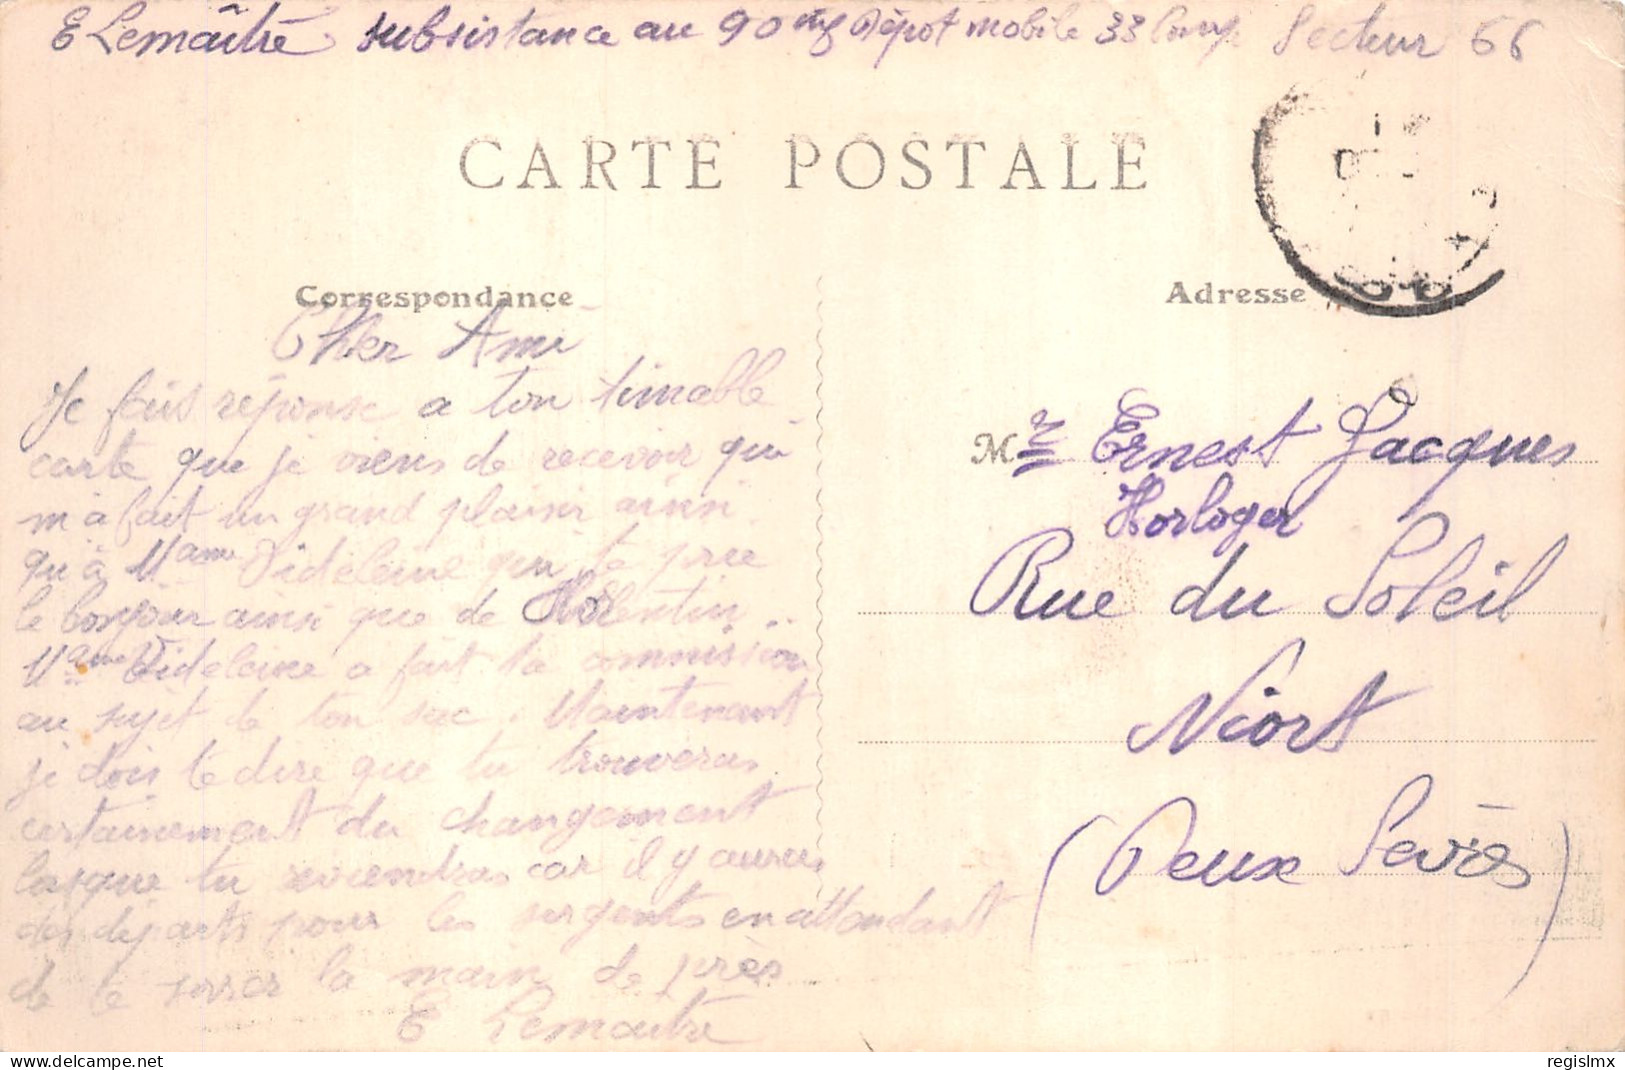 E Lemaître subsistance au 90 Dépot mobile 33 Comp Secteur 66
CARTE POSTALE
Correspondance
Adresse
Cher Ami
Je fais réponse a ton aimable
carte que je viens de recevoir qui
m'a fait un grand plaisir ainsi
qu'à Mame Videleine qui te prie
le bonjour ainsi que de
Mame Videleine a fait ta commission
au sujet de ton sac. Maintenant
je dois te dire que tu trouveras
certainement du changement
lorsque tu reviendras car il y auras
des départs pour les sergents en attendant
de te serrer la main de près
E Lemaitre
Mr Ernest Jacques
Horloger
Rue du Soleil
Niort
(Deux Sevres)
delcampe.net
regislmx